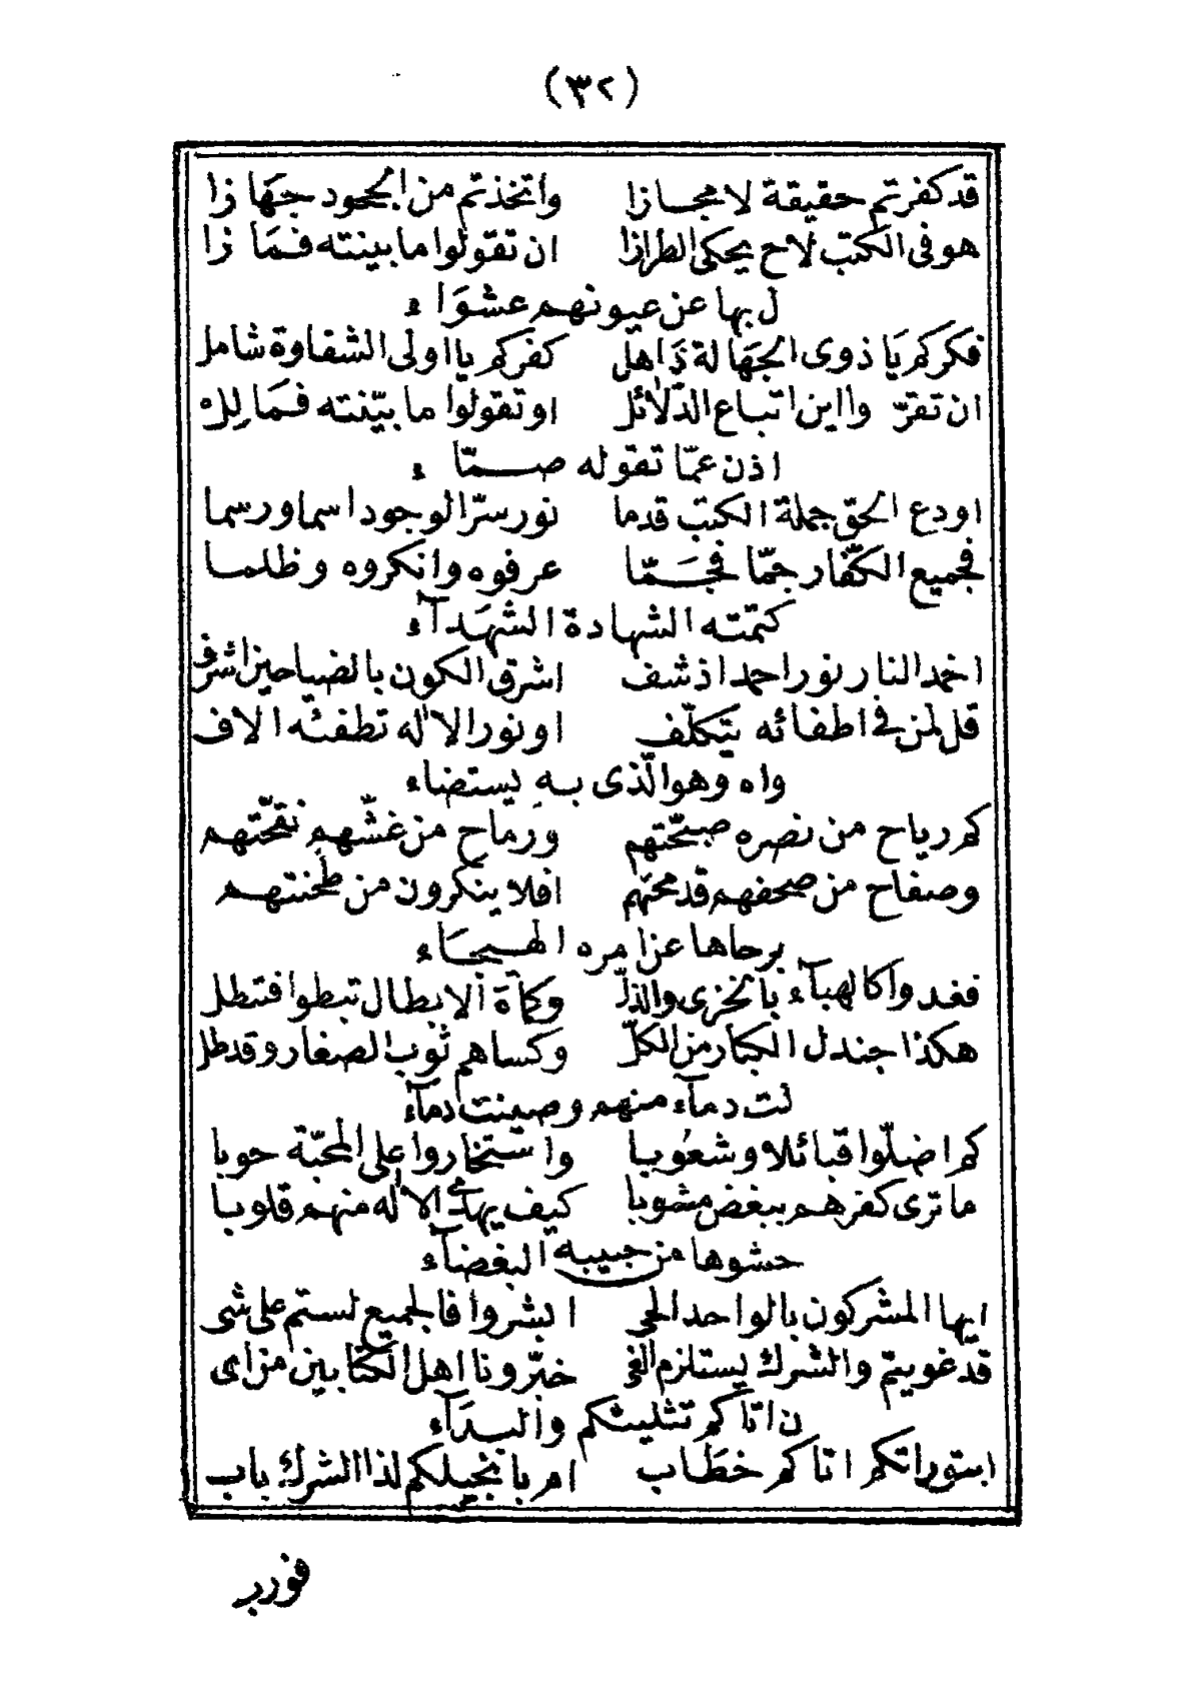 (٣٢)
قد كفرتم حقيقة لا مجازا واتخذتم من الجحود جهَازا
هو فى الكتب لاح يحكى الطرازا ان تقولوا ما بينته فمَا زا
ل بها عن عيونهم عشوَاء
فكركم يَا ذوى الجهَالة ذَاهل كفركم يا اولى الشقاوة شامل
ان تقرّوا اين اتباع الدّلائل او تقولوا ما بيّنته فمَا لِلْ
اذن عمّا تقوله صمّاء
اودع الحق جملة الكتب قدما نور سرّ الوجود اسما ورسما
فجميع الكفّار جمّا فجَمّا عرفوه وانكروه وظلما
كتمته الشهادة الشهَدآء
اخمد النار نور احمد اذ شف اشرق الكون بالضيا حين اشرف
قل لمن فى اطفائه يتكلّف او نور الاٰله تطفئه الاف
واه وهو الّذى بهِ يستضاء
كم رياح من نصره صبّحتهم ورماح من غشّهم نقّحتهم
وصفاح من صحفهم قد محتهم افلا ينكرون من طحنتهم
برحاها عن امره الهيجَاء
فغدوا كالهبآء بالخزى والذلّ وكمآة الابطال تبطوا فتبطل
هكذا جندل الكبار من الكلّ وكساهم ثوب الصغار وقد طل
لت دمآء منهم وصينت دمآء
كم اضلّوا قبائلا وشعُوبا واستخاروا على المحبّة حوبا
ما ترى كفرهم ببغض مشوبا كيف يهدى الاٰله منهم قلوبا
حشوها من حبيبه البغضآء
ايها المشركون بالواحد الحى ابشروا فالجميع لستم على شى
قد غويتم والشرك يستلزم الغى خبّرونا اهل الكتابين من اى
ن اتاكم تثليثكم والبدَآء
ابتوراتكم اتاكم خطَاب ام بانجيلكم لذا الشرك باب
فورب